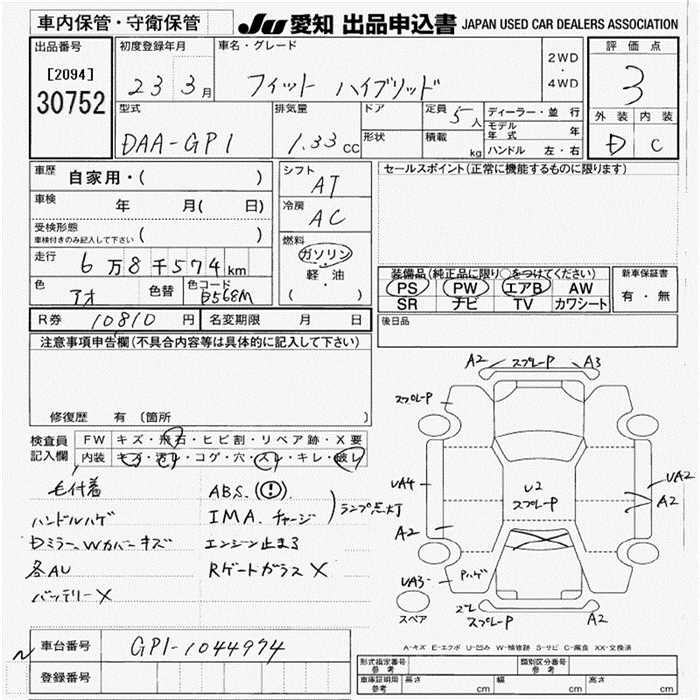 車内保管・守衛保管
JU 愛知 出品申込書 JAPAN USED CAR DEALERS ASSOCIATION
出品番号
[2094]
30752
初度登録年月
23 3月
車名・グレード
フィット ハイブリッド
2WD
・
4WD
評価点
3
外装 内装
D C
型式
DAA-GP1
排気量
1.33cc
ドア
形状
定員 5人
積載 kg
ディーラー・並 行
モデル年式 年
ハンドル 左・右
車歴 自家用・( )
車検 年 月( 日)
受検形態
車検付きのみ記入して下さい ( )
走行 6万8千574km
色 アオ 色替 色コード B568M
シフト
AT
冷房
AC
燃料
ガソリン
・
軽・油
( )
セールスポイント(正常に機能するものに限ります)
装備品(純正品に限り○をつけてください)
PS PW エアB AW
SR ナビ TV カワシート
新車保証書
有・無
R券 10810 円 名変期限 月 日
後日品
注意事項申告欄(不具合内容等は具体的に記入して下さい)
修復歴 有 (箇所
検査員
記入欄
FW キズ・飛石・ヒビ割・リペア跡・X要
内装 キズ・汚レ・コゲ・穴・スレ・キレ・破レ
毛付着
ハンドルハゲ
DミラーWカバーキズ
各AU
バッテリーX
ABS. (!).
IMA. チャージ
ランプ点灯
エンジン止まる
Rゲートガラス X
A2 スプレーP A3
スプレーP
UA4
A2
UA3
Pハゲ
U2
スプレーP
UA2
A2
ズレ
スプレーP A2
スペア
A-キズ E-エクボ U-凹み W-補修跡 S-サビ C-腐食 XX-交換済
車台番号 GP1-1044974
登録番号
形式指定番号
参考
類別区分番号
参考
車庫証明用
参考
長さ cm 幅 cm 高さ cm